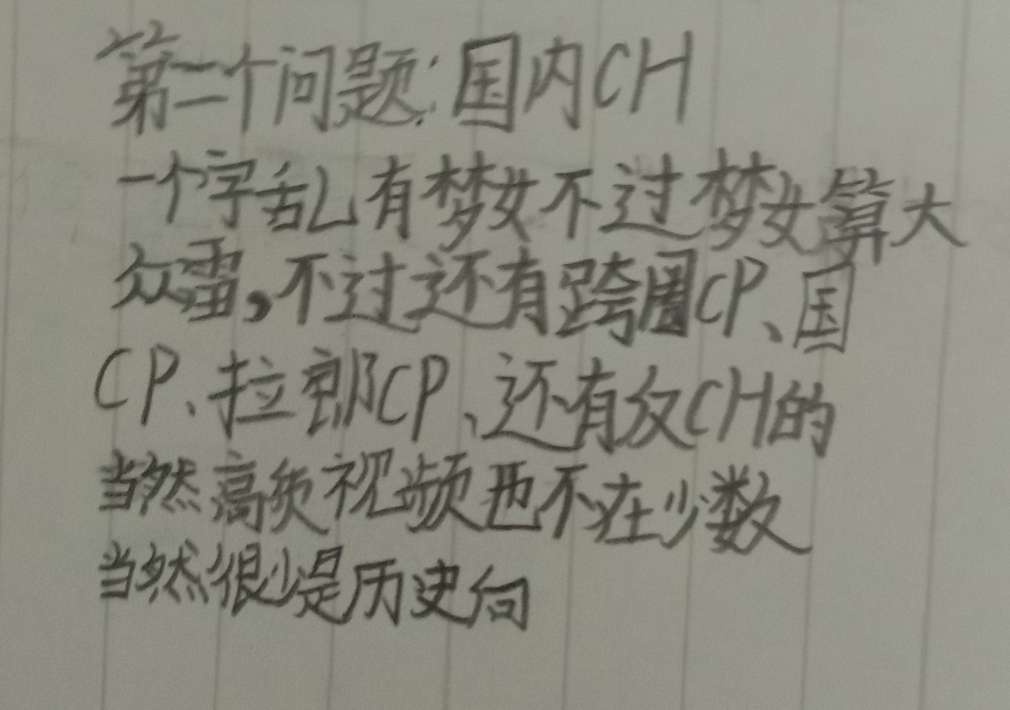 第二个问题:国内CH
一个字乱有梦女不过梦女算大
众雷,不过还有跨圈CP、国
CP、拉郎CP、还有反CH的
当然高质视频也不在少数
当然很少是历史向